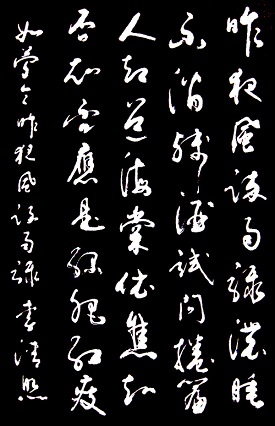 昨夜風疏雨驟濃睡
不消殘酒試問捲簾
人却道海棠依舊知
否知否應是綠肥紅瘦
如夢令昨夜風疏雨驟 李清照